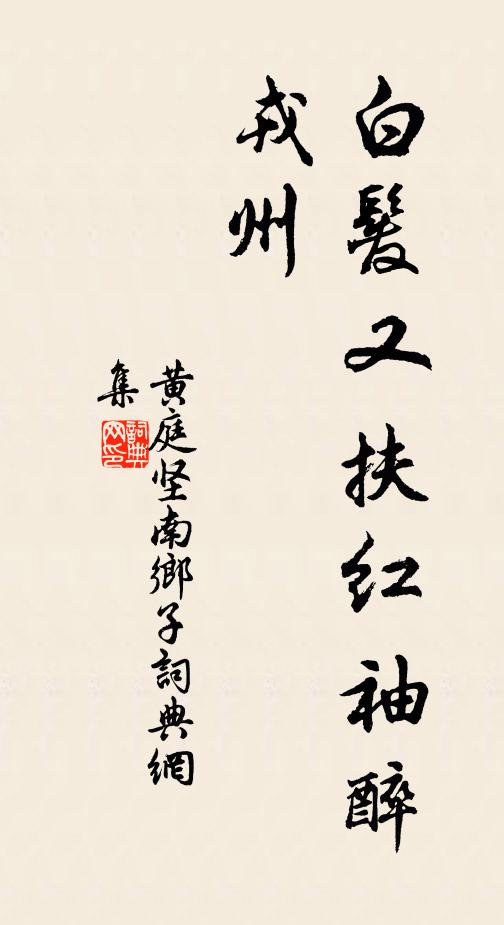 白髮又扶红袖醉
戎州
黄庭坚南鄉子詞典網
集
詞典
网印